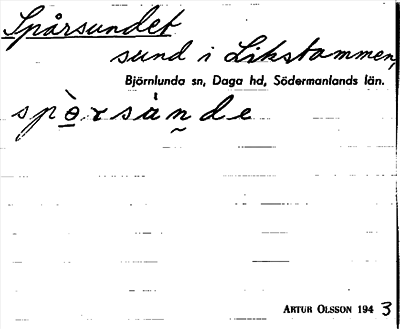 Spårsundet
sund i Likstammen,
Björnlunda sn, Daga hd, Södermanlands län.
spo̠̊̀.rsùn̰de
ARTUR OLSSON 1943